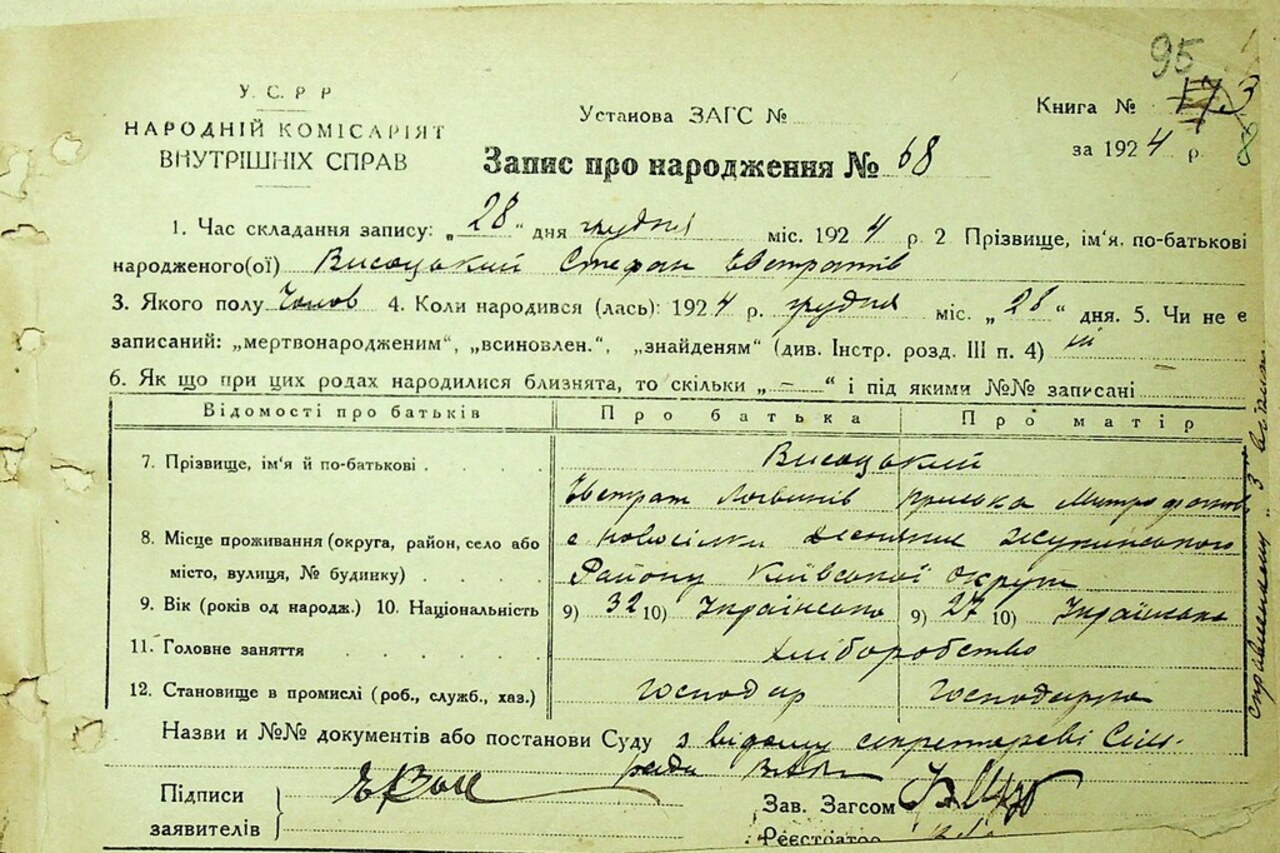 95
У. С. Р. Р
НАРОДНІЙ КОМІСАРІЯТ
ВНУТРІШНІХ СПРАВ
Установа ЗАГС №
Книга № 173
за 1924 р. 8
Запис про народження № 68
1. Час складання запису: „28“ дня грудня міс. 1924 р. 2 Прізвище, ім'я, по-батькові
народженого(ої) Висоцький Стефан Євстратів
3. Якого полу Чолов 4. Коли народився (лась): 1924 р. грудня міс. „28“ дня. 5. Чи не є
записаний: „мертвонародженим“, „всиновлен.“, „знайденям“ (див. Інстр. розд. III п. 4) ні
6. Як що при цих родах народилися близнята, то скільки „–“ і під якими №№ записані
Відомості про батьків Про батька Про матір
7. Прізвище, ім'я й по-батькові Висоцький
Євстрат Логвинів Приська Митрофанов
8. Місце проживання (округа, район, село або с Новосілки
місто, вулиця, № будинку) Району Київської Округи
9. Вік (років од народж.) 10. Національність 9) 32 10) Українська 9) 27 10) Українська
11. Головне заняття хліборобство
12. Становище в промислі (роб., служб., хаз.) господар господарка
Назви и №№ документів або постанови Суду з відому секретареві Сіль-
ради
Підписи
заявителів
Зав. Загсом
Реєстратор